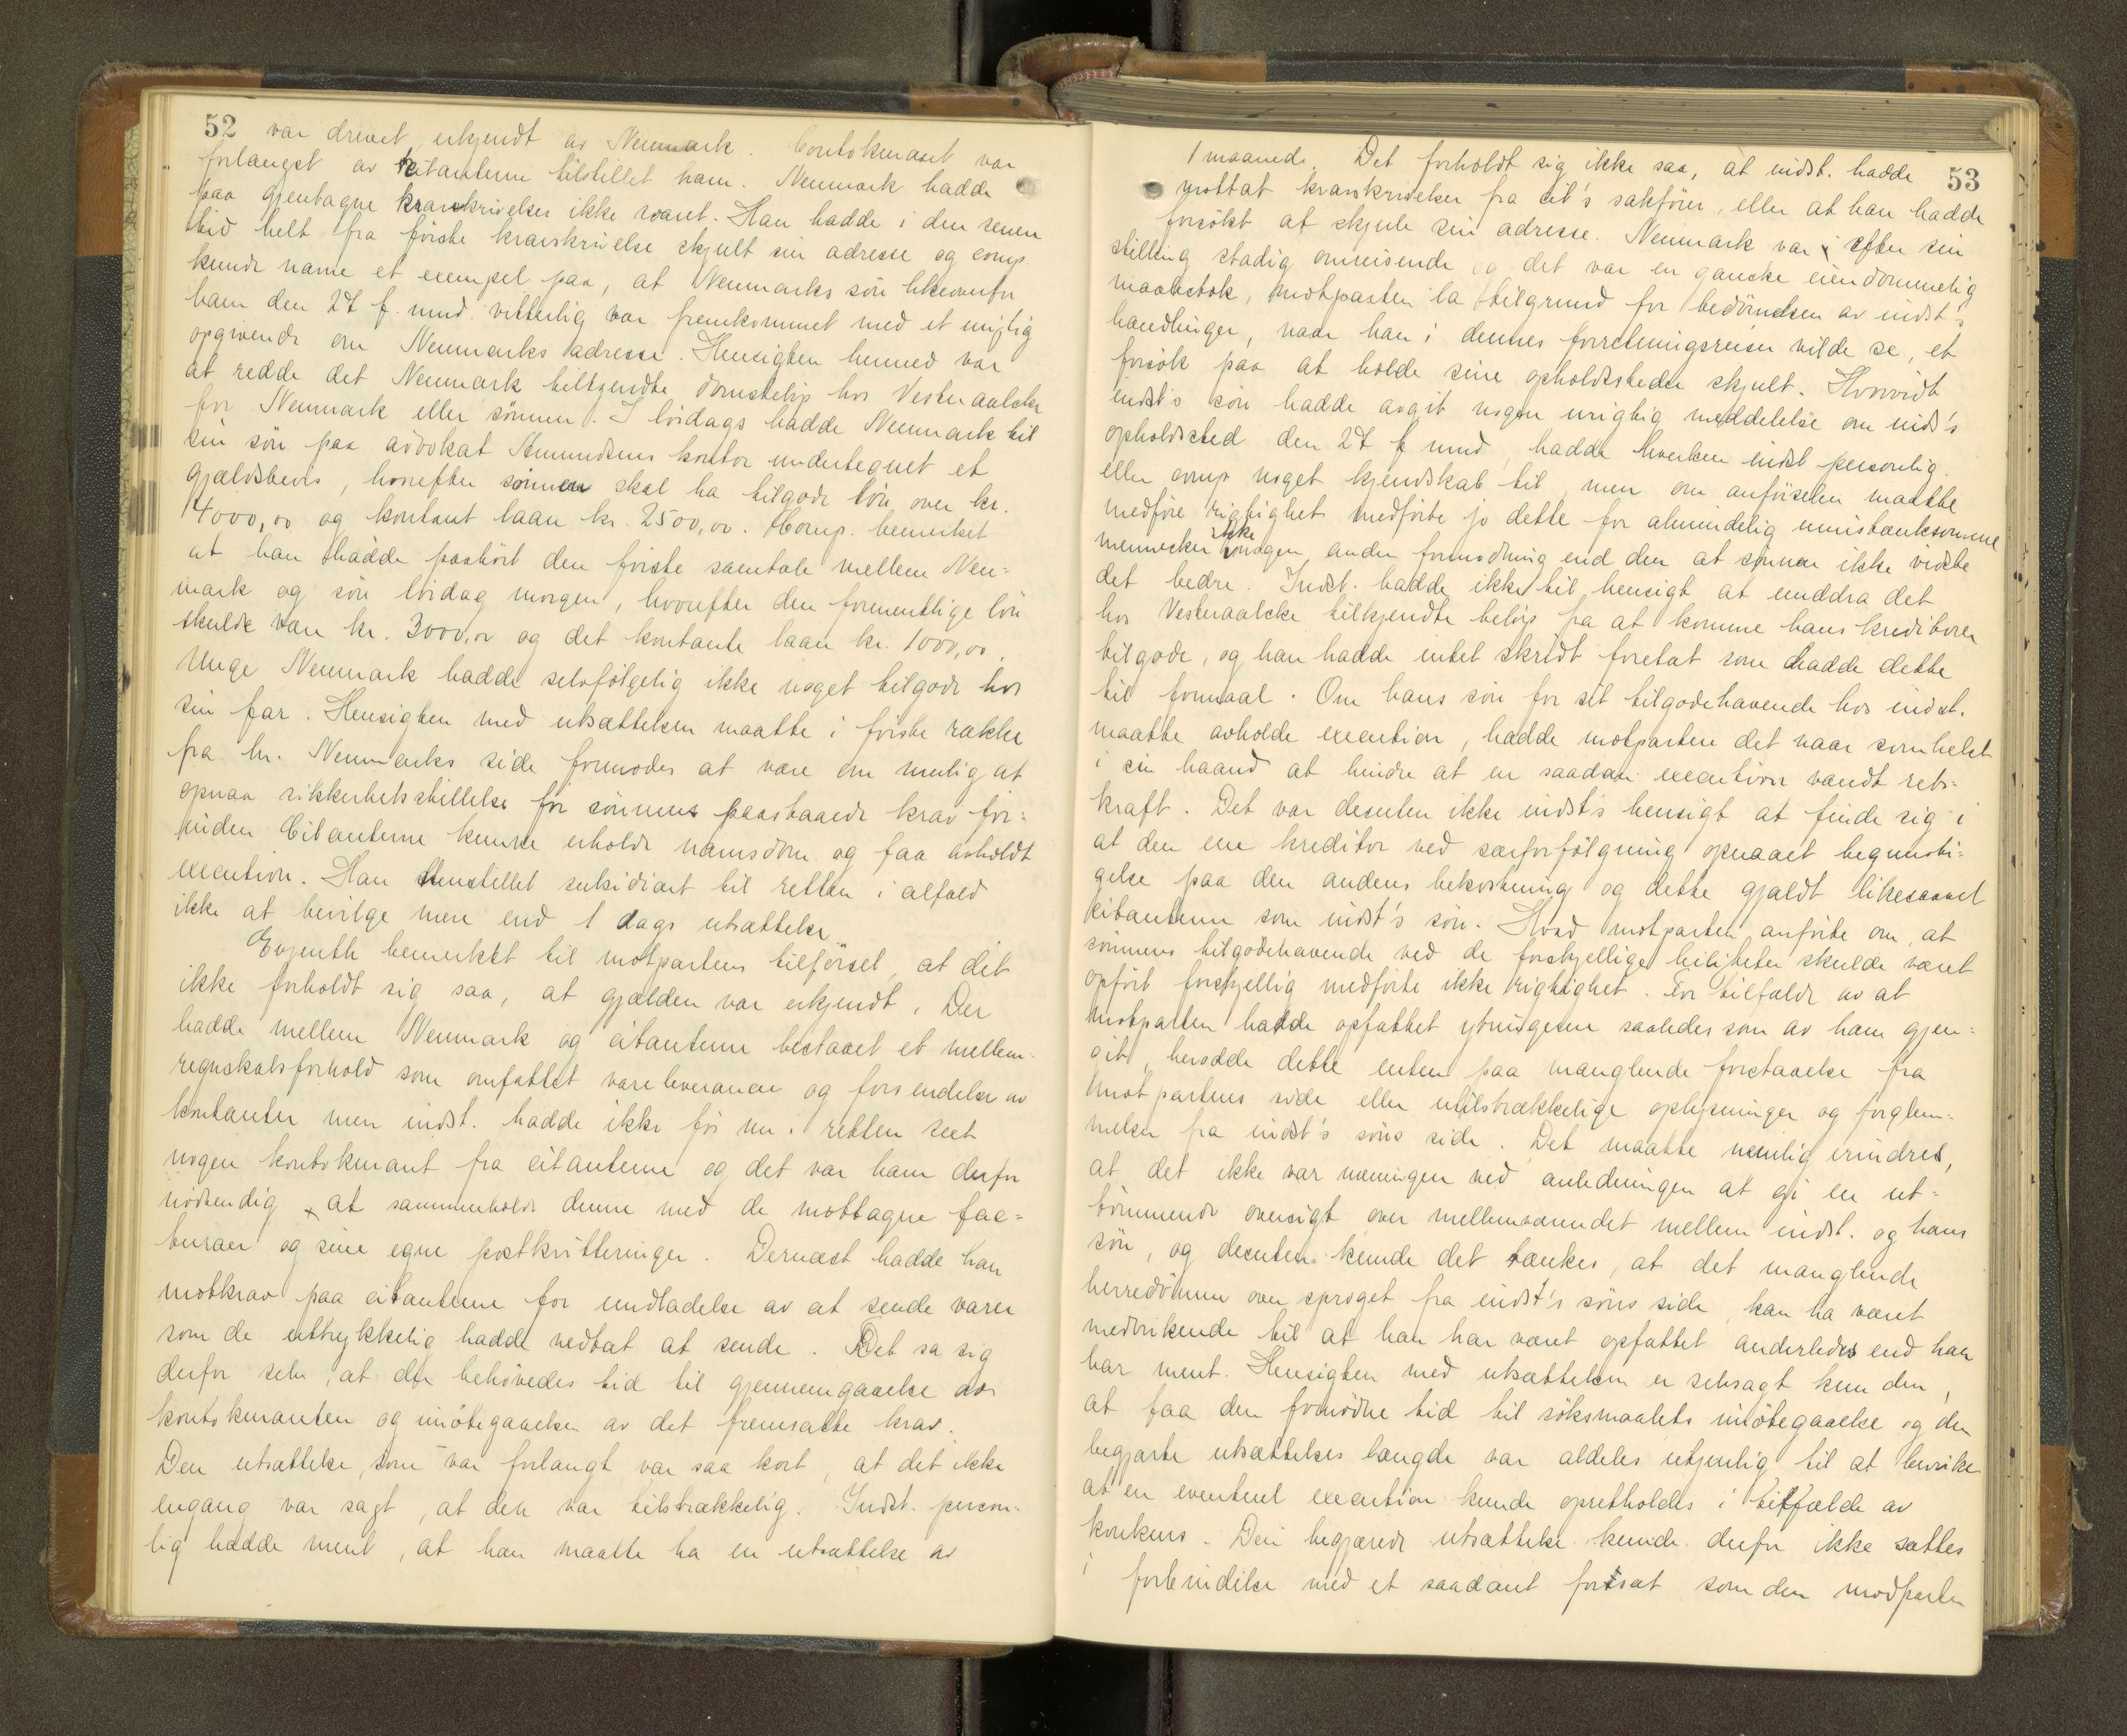 52 var drevet erkjendt av Neumark. Contokuraset var
forlangst av citanterne tilstillet ham. Neumark hadde
paa gjentagne kravskrivelser ikke svaret. Han hadde i den senere
tid helt fra første kravskrivelse skjult sin adresse og comp.
kunde nævne et exempel paa, at Neumarks søn likeoverfor
ham den 27 f. mnd. vitterlig var fremkommet med et urigtig
opgivende om Neumarks adresse. Hensigten hermed var
at redde det Neumark tilkjendte domsbeløp hos Vesteraalske
for Neumark eller sønnen. I lørdags hadde Neumark til
sin søn paa advokat Amundsens kontor undertegnet et
gjældsbevis, hvorefter sønnen skal ha tilgode løn over kr.
4000,00 og kontant laan kr. 2500,00. Comp. bemerket
at han hadde paahørt den første samtale mellem Neu-
mark og søn lørdag morgen, hvorefter den formentlige løn
skulde være kr. 3000,00 og det kontante laan kr. 1000,00.
Unge Neumark hadde selvfølgelig ikke noget tilgode hos
sin far. Hensigten med utsættelsen maatte i første række
fra hr. Neumarks side formodes at være om mulig at
opnaa sikkerhetsstillelse for sønnens paastaaede krav før-
inden Citanterne kunne erholde namsdom og faa avholdt
execution. Han henstillet subsidiært til retten i alfald
ikke at bevilge mere end 1 dags utsættelse
Evjenth bemerket til motpartens tilførsel, at det
ikke forholdt sig saa, at gjælden var erkjendt. Der
hadde mellem Neumark og citanterne bestaaet et mellem-
regnskabsforhold som omfattet vareleverancer og forsendelse av
kontanter men indst. hadde ikke før nu i retten seet
nogen kontokurant fra citanterne og det var ham derfor
nødvendig at sammenholde denne med de mottagne fac-
turaer og sine egne postkvitteringer. Dernæst hadde han
motkrav paa citanterne for undladelse av at sende varer
som de uttrykkelig hadde vedtat at sende. Det sa sig
derfor selv, at der behøvedes tid til gjennemgaaelse av
kontokuranten og imøtegaaelsen av det fremsatte krav.
Den utsættelse, som var forlangt var saa kort, at det ikke
engang var sagt, at den var tilstrækkelig. Indst. person-
lig hadde ment, at han maatte ha en utsættelse av
53
1 maaned. Det forholdt sig ikke saa, at indst. hadde
mottat kravskrivelser fra cit's sakfører, eller at han hadde
forsøkt at skjule sin adresse. Neumark var efter sin
stilling stadig omreisende og det var en ganske eiendommelig
maalestok, motparten la tilgrund for bedømelsen av indst's
handlinger, naar han i dennes forretningsreiser vilde se, et
forsøk paa at holde sine opholdssteder skjult. Hvorvidt
indst's søn hadde avgit nogen urigtig meddelelse om inds's
opholdssted den 27 f mnd, hadde hverken indst personlig
eller comp noget kjendskab til, men om anførselen maatte
medføre rigtighet medførte jo dette for almindelig umistænksomme
mennesker ikke nogen anden formodning end den at sønnen ikke vidste
det bedre. Indst. hadde ikke til hensigt at unddra det
hos Vesteraalske tilkjendte beløp fra at komme hans kreditorer
tilgode, og han hadde intet skridt foretat som hadde dette
til formaal. Om hans søn for sit tilgodehavende hos indst.
maatte avholde execution, hadde motparten det naar somhelst
i sin haand at hindre at en saadan execution vandt rets-
kraft. Det var desuten ikke indst's hensigt at finde sig i
at den ene kreditor ved særforfølgning opnaaet begunsti-
gelse paa den andens bekostning og dette gjaldt likesaavel
citanterne som indst's søn. Hvad motparten anførte om, at
sønnens tilgodehavende ved de forskjellige leiligheter skulde været
opført forskjellig medførte ikke rigtighet. For tilfælde av at
motparten hadde opfattet ytringerne saaledes som av ham gjen-
git, berodde dette enten paa manglende forstaaelse fra
motpartens side eller utilstrækkelige oplysninger og forglem-
melser fra indst's søns side. Det maatte nemlig erindres,
at det ikke var meningen ved anledningen at gi en ut-
tømmende oversigt over mellemværendet mellem indst. og hans
søn, og desuten kunde det tænkes, at det manglende
herredømme over sproget fra indst's søns side, kan ha været
medvirkende til at han har været opfattet anderledes end han
har ment. Hensigten med utsættelsen er selvsagt kun den,
at faa den fornødne tid til søksmaalets imøtegaaelse og den
begjærte utsættelses længde var aldeles utjenlig til at bevirke
at en eventuel execution kunde opretholdes i tilfælde av
konkurs. Den begjærede utsættelse kunde derfor ikke sættes
i forbindelse med et saadant fortsæt som den modparten